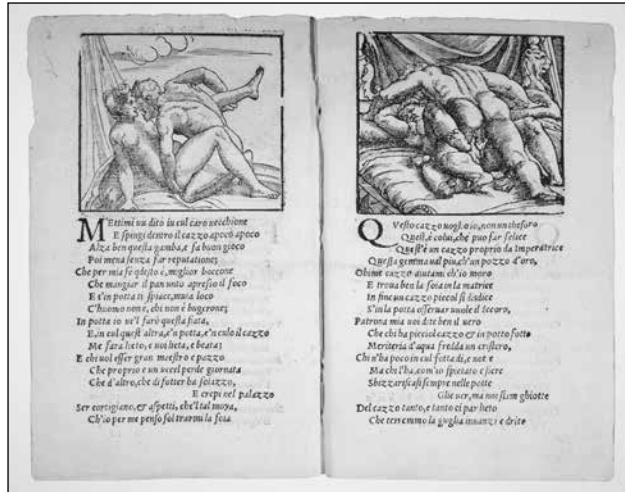 MEttimi un dito in cul caro vecchione
E spingi dentro il cazzo apoco apoco
Alza ben questa gamba, e fa buon gioco
Poi mena senza far reputatione;
Che per mia fe questo è, miglior boccone
Che mangiar il pan unto apresso il foco
E s'in potta ti spiace, muta loco
C'huomo non è, chi non è bugerone;
In potta io ve'l farò questa fiata,
E, in cul quest'altra, e'n potta, e'n culo il cazzo
Me fara lieto, e voi lieta, e beata;
E chi vol esser gran maestro e pazzo
Che proprio e un uccel perde giornata
Che d'altro, che di fotter ha solazzo,
E crepi nel palazzo
Ser cortigiano, & aspetti, che'l tal moya,
Ch'io per me penso sol trarmi la foia
QVesto cazzo voglio io, non un thesoro
Quest, è colui, che puo far felice
Quest'è un cazzo proprio da Imperatrice
Questa gemma val piu, ch'un pozzo d'oro,
Ohime cazzo aiutami ch'io moro
E trova ben la foia in la matrice
In fine un cazzo piccol si disdice
S'in la potta osservar vuole il decoro,
Patrona mia voi dite ben il vero
Che chi ha picciol cazzo & in potto fotte
Meriteria d'aqua fredda un cristero,
Chi n'ha poco in cul fotta di, e notte
Ma chi l'ha, com'io spietato e fiere
Sbizzariscasi sempre nelle potte
Del cazzo tanto, e tanto ci par lieto
Che terremmo la guglia innanzi e drieto